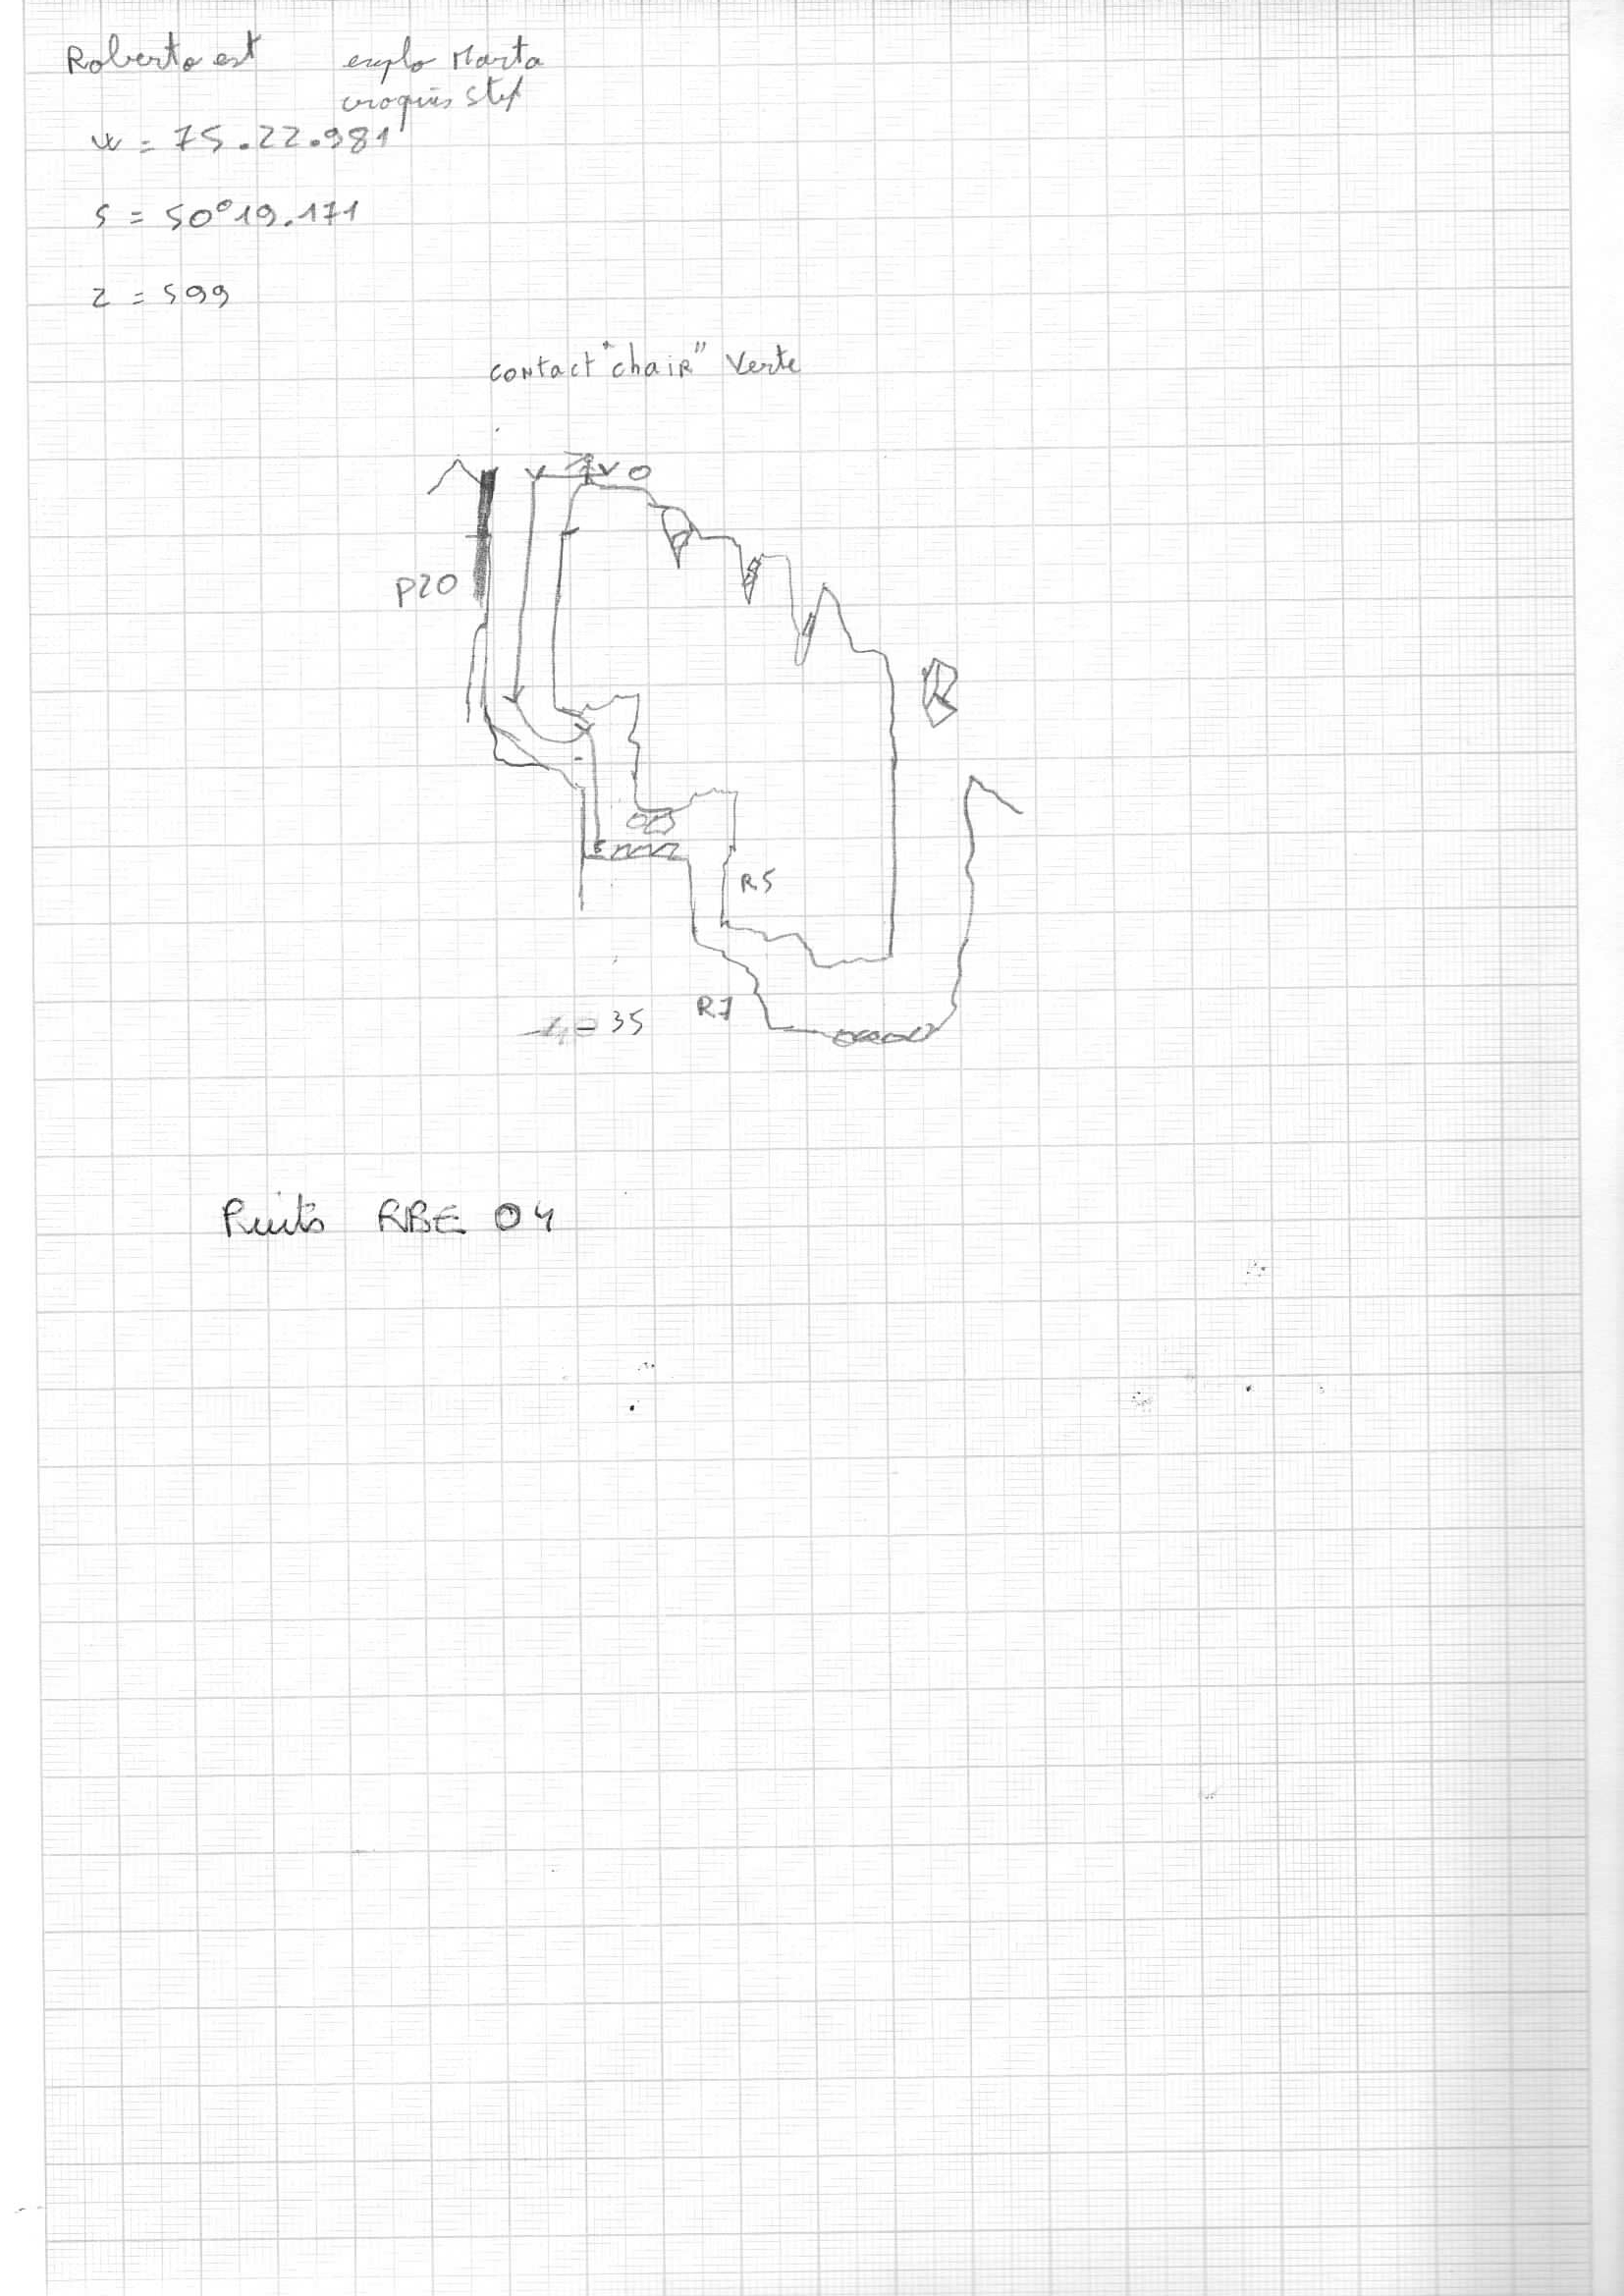 Roberto est explo Marta
croquis Stef
W = 75.22.981
S = 50°19.171
Z = 599
contact "chair" Verte
0
P20
R5
R7
- 35
Puits RBE 04